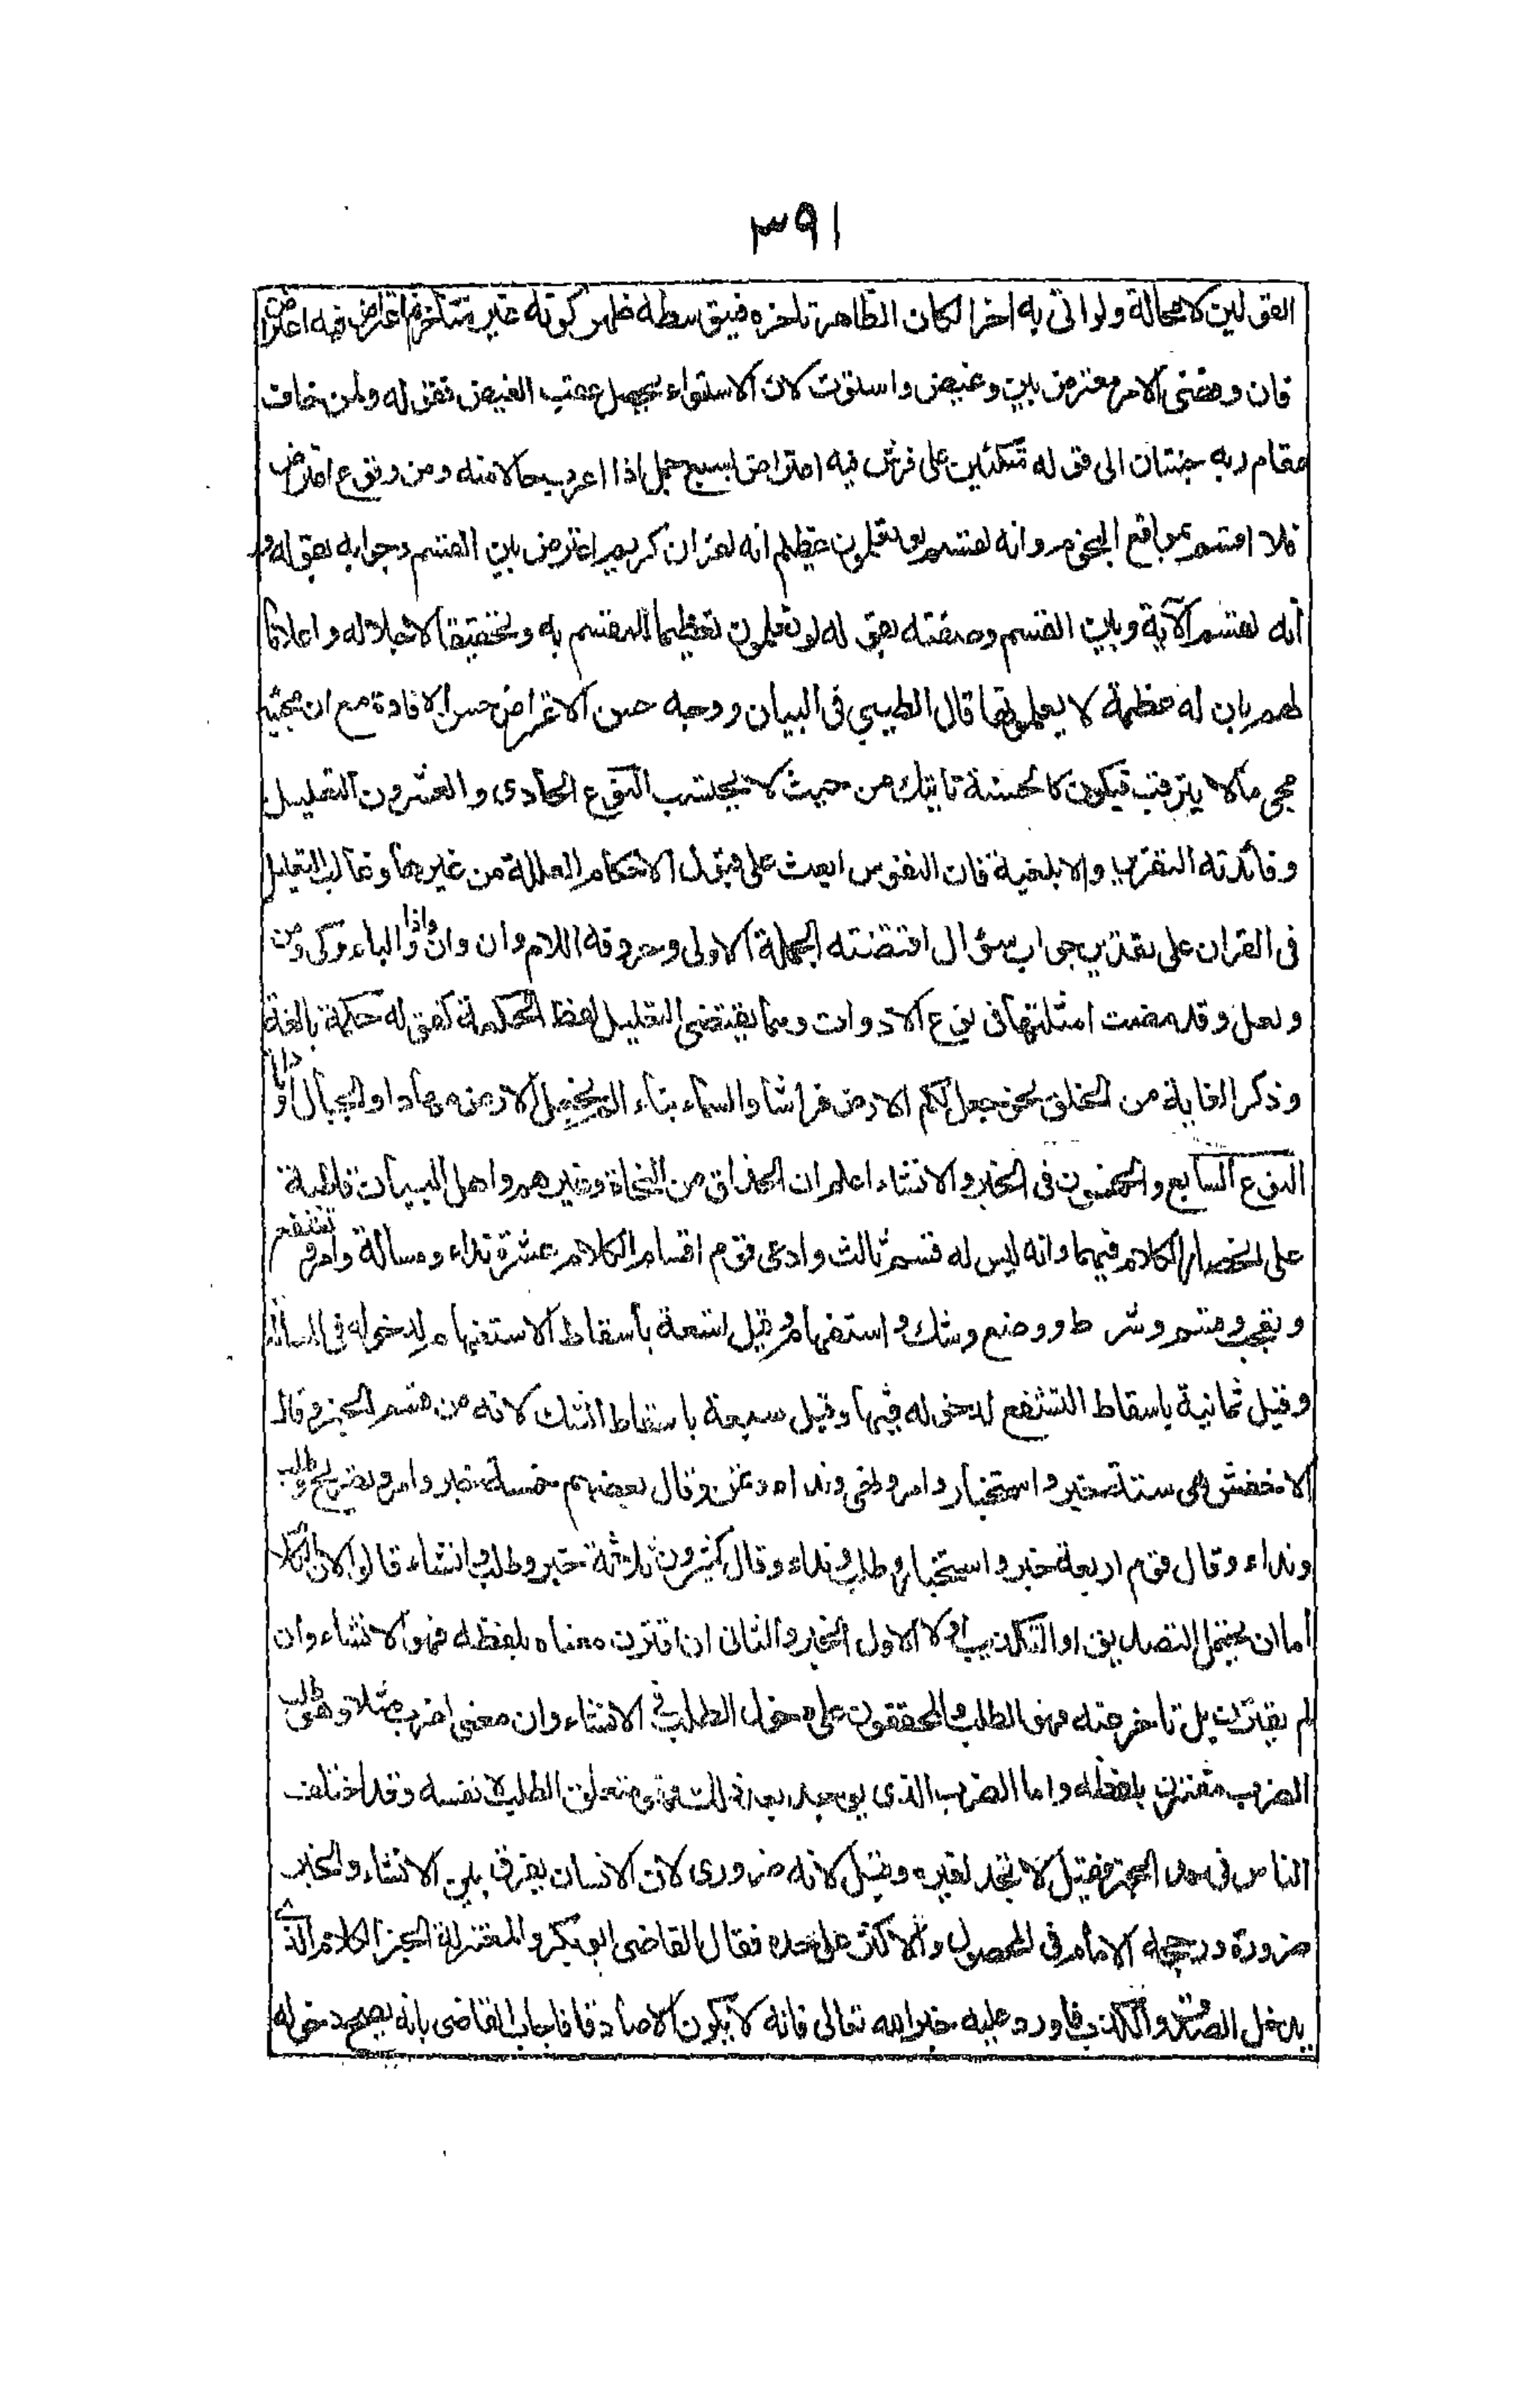 ٣٩١
القولين لا محالة ولو اتى به اخرا لكان الظاهر تاخره فبتوسطه ظهر كونه غير متأخر ثم فيه اعتراض في اعتراض
فان وقضى الامر معترض بين وغيض واستوت لان الاستواء يحصل عقب الغيض فقوله ولمن خاف
مقام ربه جنتان الى قوله متكئين على فرش فيه اعتراض بسبع جمل اذا اعرب حالا منه ومن وقوع اعتراض
فلا اقسم بمواقع النجوم وانه لقسم لو تعلمون عظيم انه لقران كريم اعترض بين القسم وجوابه بقوله و
انه لقسم الآية وبين القسم وصفته بقوله لو تعلمون تعظيما للمقسم به وتحقيقا لاجلاله واعلاما
لهم بان له عظمة لا يعلمونها قال الطيبي في البيان ووجه حسن الاعتراض حسن الافادة مع ان مجيئه
مجى مالا يترقب فيكون كالحسنة تاتيك من حيث لا تحتسب النوع الحادى والعشرون التعليل
وفائدته التقرير والابلغية فان النفوس ابعث على قبول الاحكام المعللة من غيرها وغالب التعليل
فى القران على تقدير جواب سؤال اقتضته الجملة الاولى وحروفه اللام وان وان واذ والباء وكى ومن
ولعل وقد مضت امثلتها فى نوع الادوات ومما يقتضى التعليل لفظ الحكمة كقوله حكمة بالغة
وذكر الغاية من الخلق نحو جعل لكم الارض فراشا والسماء بناء الم نجعل الارض مهادا والجبال اوتادا
النوع السابع والخمسون فى الخبر والانشاء اعلم ان الحذاق من النحاة وغيرهم واهل البيان قاطبة
على انحصار الكلام فيهما وانه ليس له قسم ثالث وادعى قوم اقسام الكلام عشرة نداء ومسالة وامر وتشفع
وتعجب وقسم وشرط ووضع وشك واستفهام وقيل تسعة باسقاط الاستفهام لدخوله فى المسالة
وقيل ثمانية باسقاط التشفع لدخوله فيها وقيل سبعة باسقاط الشك لانه من قسم الخبر وقال
الاخفش هى ستة خبر واستخبار وامر ونهى ونداء وتمن وقال بعضهم خمسة خبر وامر وتصريح وطلب
ونداء وقال قوم اربعة خبر واستخبار وطلب ونداء وقال كثيرون ثلثة خبر وطلب وانشاء قالوا لان الكلام
اما ان يحتمل التصديق او التكذيب او لا الاول الخبر والثانى ان اقترن معناه بلفظه فهو الانشاء وان
لم يقترن بل تاخر عنه فهو الطلب والمحققون على دخول الطلب فى الانشاء وان معنى اضرب مثلا وهو طلب
الضرب مقترن بلفظه واما الضرب الذى يوجد بعد ذلك فهو متعلق الطلب لا نفسه وقد اختلف
الناس فى حد الخبر فقيل لا يحد لعسره وقيل لانه ضرورى لان الانسان يفرق بين الانشاء والخبر
ضرورة ورجحه الامام فى المحصول والاكثر على حده فقال القاضى ابو بكر والمعتزلة الخبر الكلام الذى
يدخله الصدق والكذب فاورد عليه خبر الله تعالى فانه لا يكون الا صادقا فاجاب القاضى بانه يصح دخوله